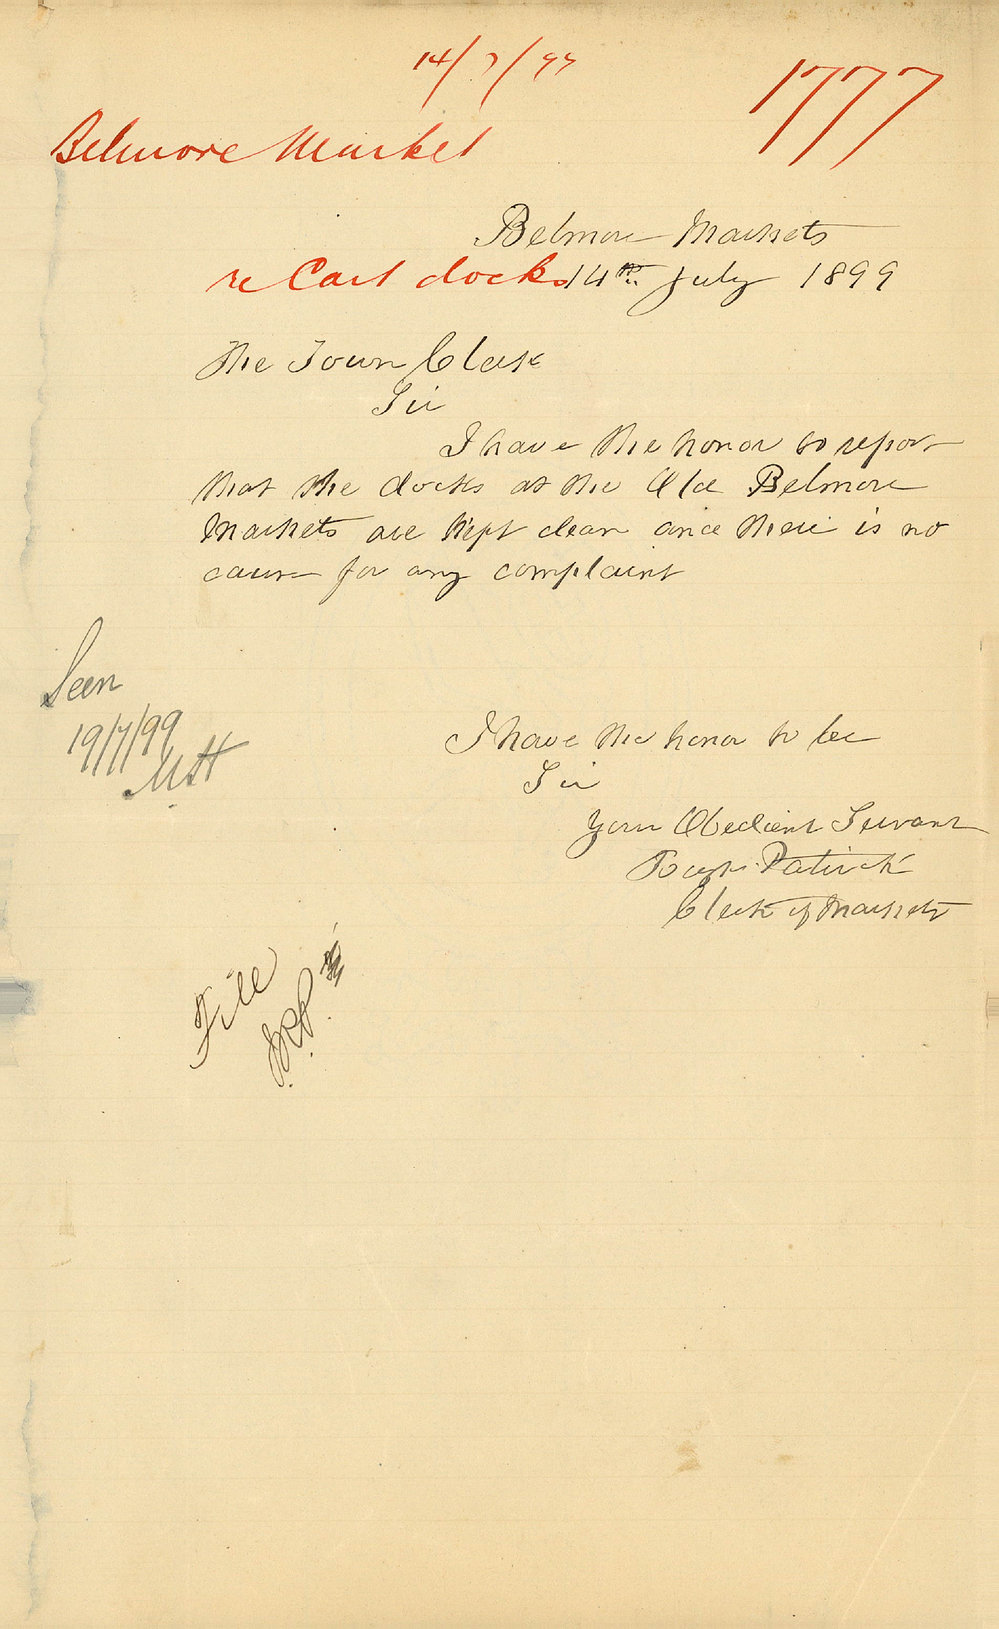 14/7/99
1777
Belmore Market
Belmore Markets
re Cart docks 14th July 1899
The Town Clerk
Sir
I have the honor to report
that the docks at the Old Belmore
Markets are kept clean and there is no
cause for any complaint
Seen
19/7/99
I have the honor to be
Sir
Your Obedient Servant
Patrick
Clerk of Markets
File